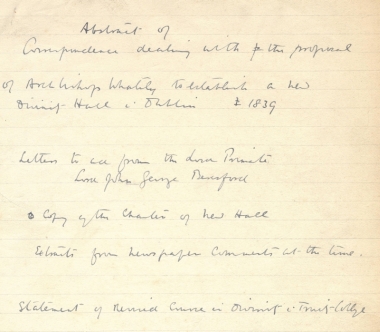 Abstract of
Correspondence dealing with the proposal
of Archbishop Whately to establish a new
Divinity Hall in Dublin 1839
Letters to and from the Lord Primate
Lord John George Beresford
Copy of the Charter of New Hall
Extracts from newspaper comments at the time.
Statement of Revised Course in Divinity in Trinity College